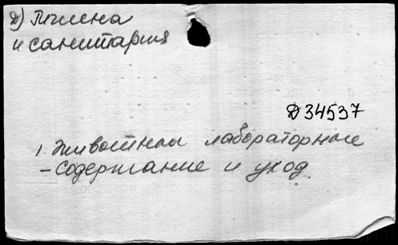 2) Гигиена
и санитария
Д34537
1. Животные лабораторные
- содержание и уход.